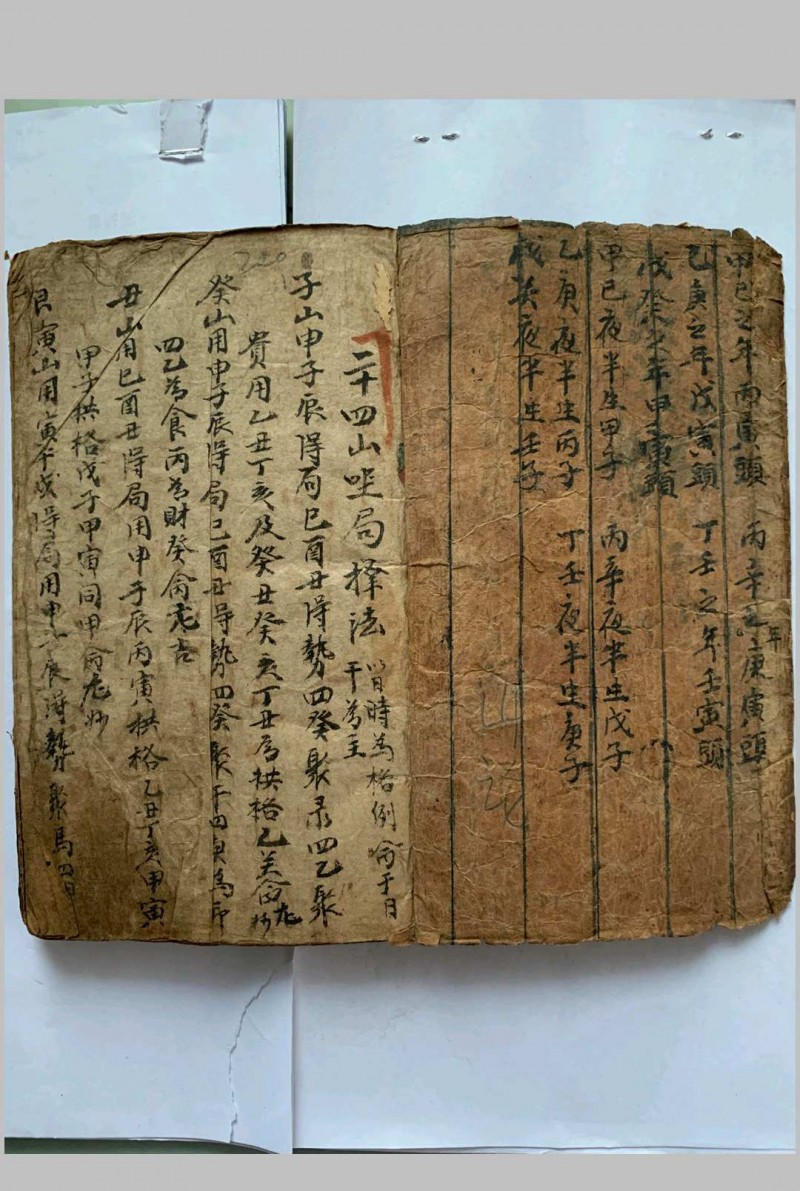 甲己之年丙寅頭 丙辛之年庚寅頭
乙庚之年戊寅頭 丁壬之年壬寅頭
戊癸之年甲寅頭
甲己夜半生甲子 丙辛夜半生戊子
乙庚夜半生丙子 丁壬夜半生庚子
戊癸夜半生壬子
二十四山坐局择法 皆時為格例
干為主
子山申子辰得局巳酉丑得勢四癸聚彔四乙聚
貴用乙丑丁亥及癸丑癸亥丁丑為拱格乙
癸山用申子辰得局巳酉丑得勢四癸聚干四庚為印
四乙為食丙為財癸龙吉
丑山用巳酉丑得局用申子辰丙寅拱格乙丑丁亥甲寅
甲子拱格戊子甲寅同甲龙妙
艮寅山用寅午戌得局用申子辰得勢聚馬四